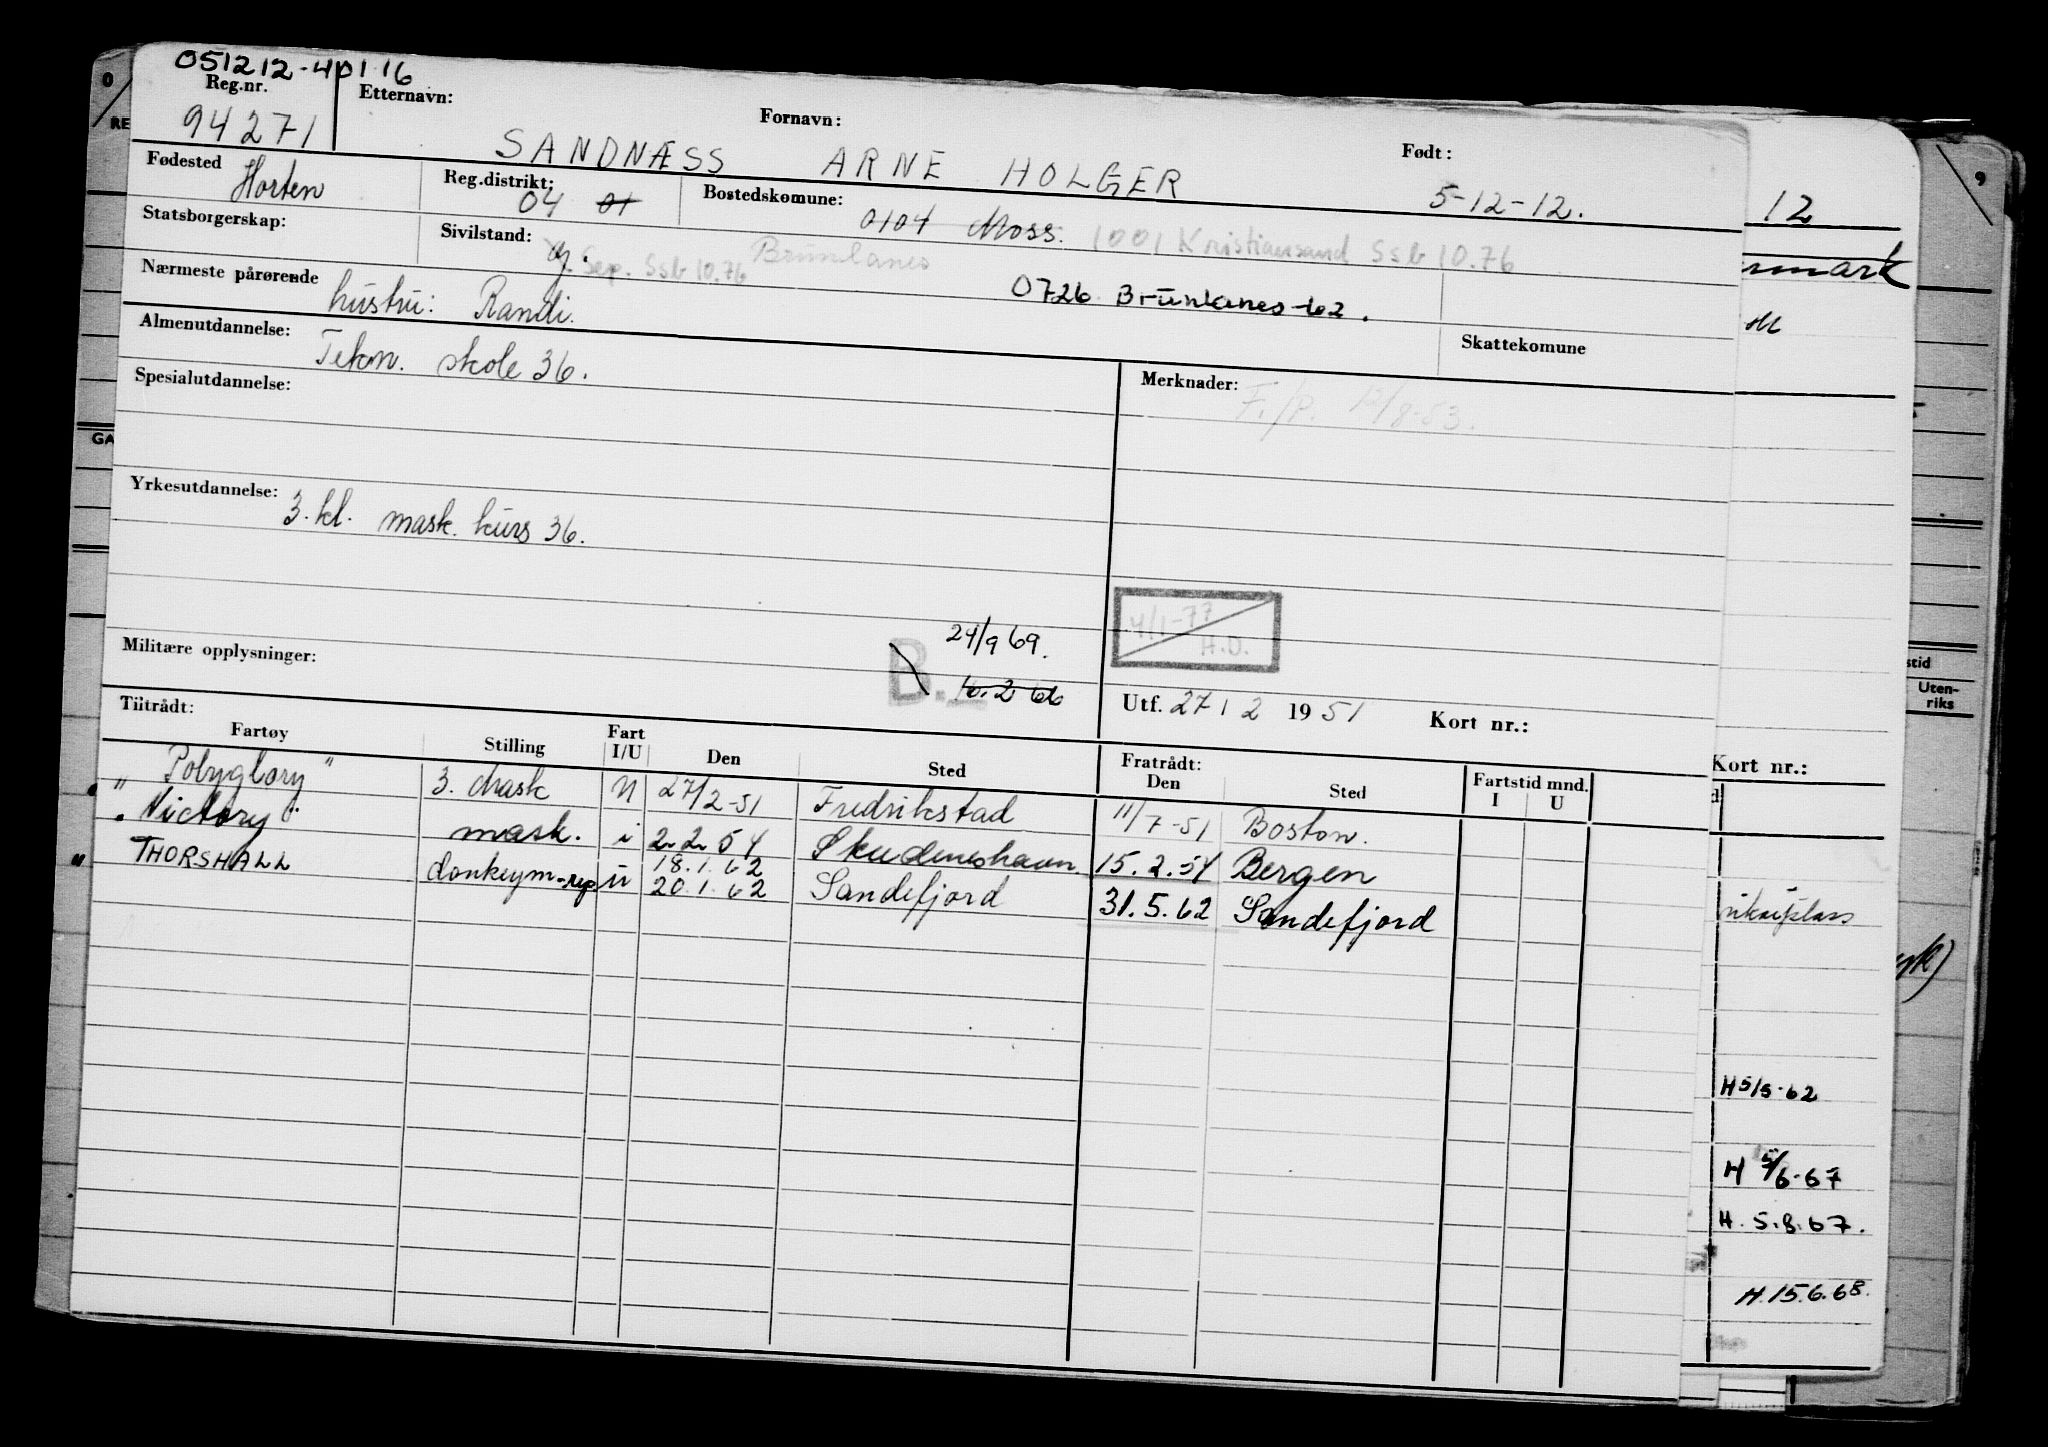 051212-40116
Reg.nr. Etternavn: Fornavn: Født:
94271 SANDNÆSS ARNE HOLGER 5-12-12.
Fødested Horten Reg.distrikt: 04 01 Bostedskomune: 0104 Moss. 1001 Kristiansand Ssb 10.76
Statsborgerskap: Sivilstand: g. Sep. Ssb 10.76 Brunlanes
Nærmeste pårørende hustru: Randi. 0726 Brunlanes-62.
Almenutdannelse: Tekn. skole 36. Skattekomune
Spesialutdannelse: Merknader: F./P. 12/8-53.
Yrkesutdannelse: 3. kl. mask. kurs 36.
4/1-77 H.O.
Militære opplysninger: B. 24/9 69.
16.2 66
Utf. 27/2 1951 Kort nr.:
Tiltrådt: Fratrådt:
Fartøy Stilling Fart I/U Den Sted Den Sted Fartstid mnd. I U
"Polyglory" 3. Mask U 27/2-51 Fredrikstad 11/7-51 Boston.
"Victory" mask. i 2.2.54 Skudeneshavn 15.2.54 Bergen
" THORSHALL donkeym-rep u 18.1.62
20.1.62 Sandefjord 31.5.62 Sandefjord
0
RE
GA
12
Kort nr.:
H 5/5-62
H 5/6-67
H. 5.8.67.
H. 15.6.68.
9
stid
Uten-
riks